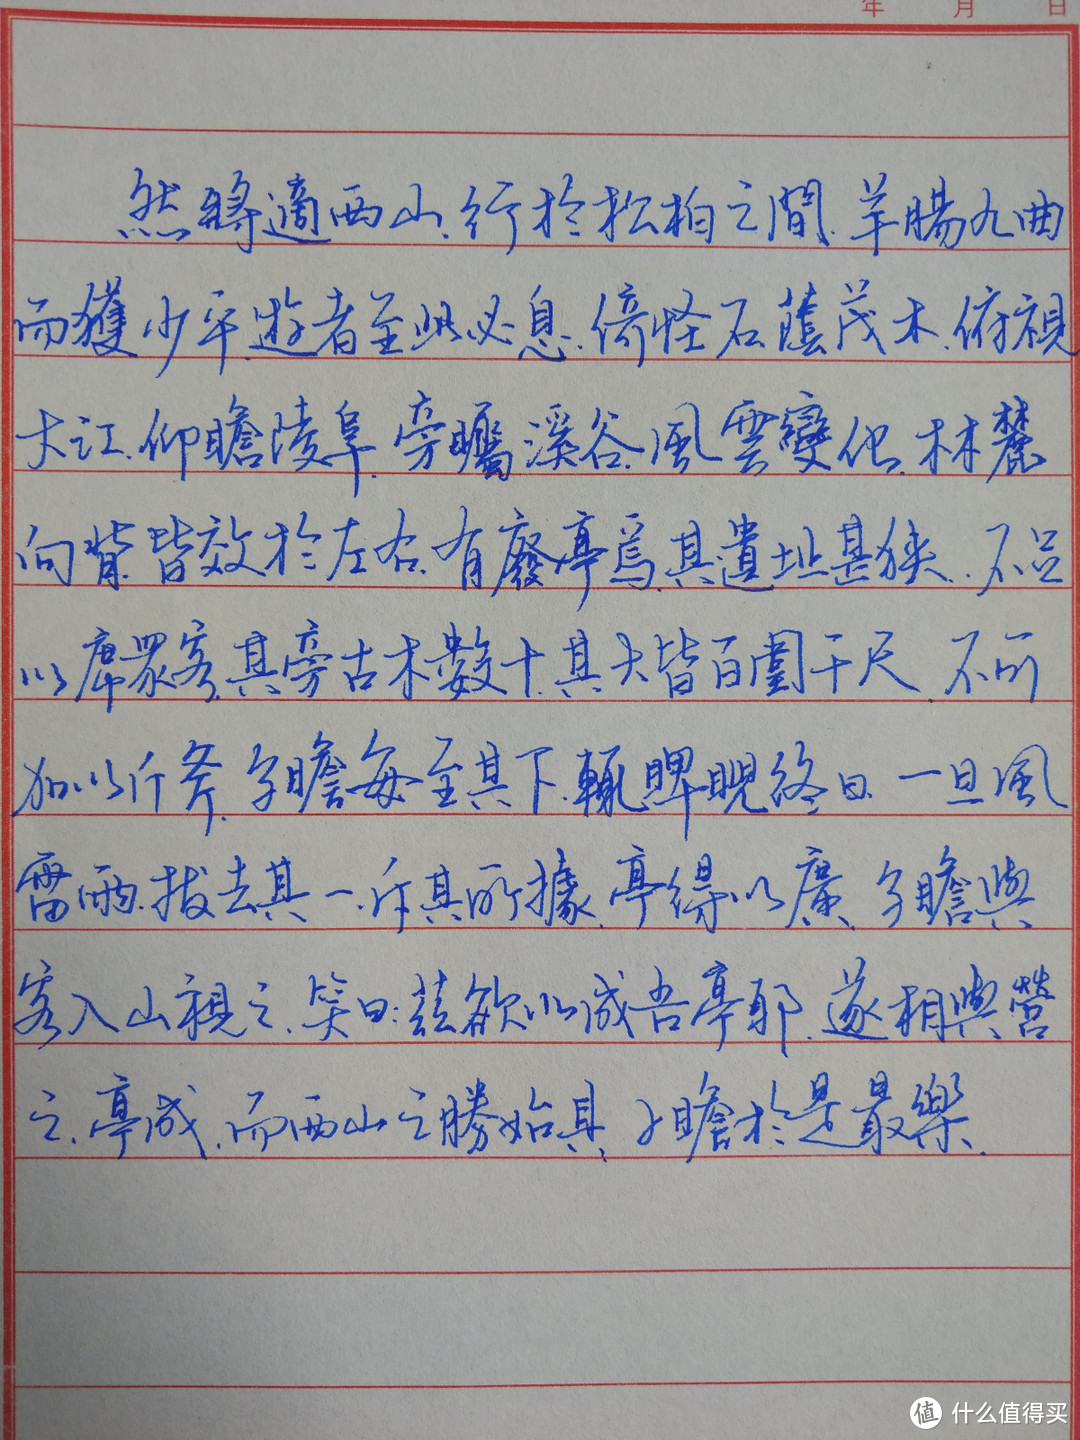 年 月 日
然將適西山、行於松柏之間、羊腸九曲
而獲少平、遊者至此必息、倚怪石、蔭茂木、俯視
大江、仰瞻陵阜、旁矚溪谷、風雲變化、林麓
向背、皆效於左右、有廢亭焉、其遺址甚狹、不足
以席眾客、其旁古木數十、其大皆百圍千尺、不可
加以斤斧、子瞻每至其下、輒睥睨終日、一旦風
雷雨、拔去其一、斥其所據、亭得以廣、子瞻與
客入山視之、笑曰:茲欲以成吾亭耶、遂相與營
之、亭成、而西山之勝始具、子瞻於是最樂、
值 什么值得买